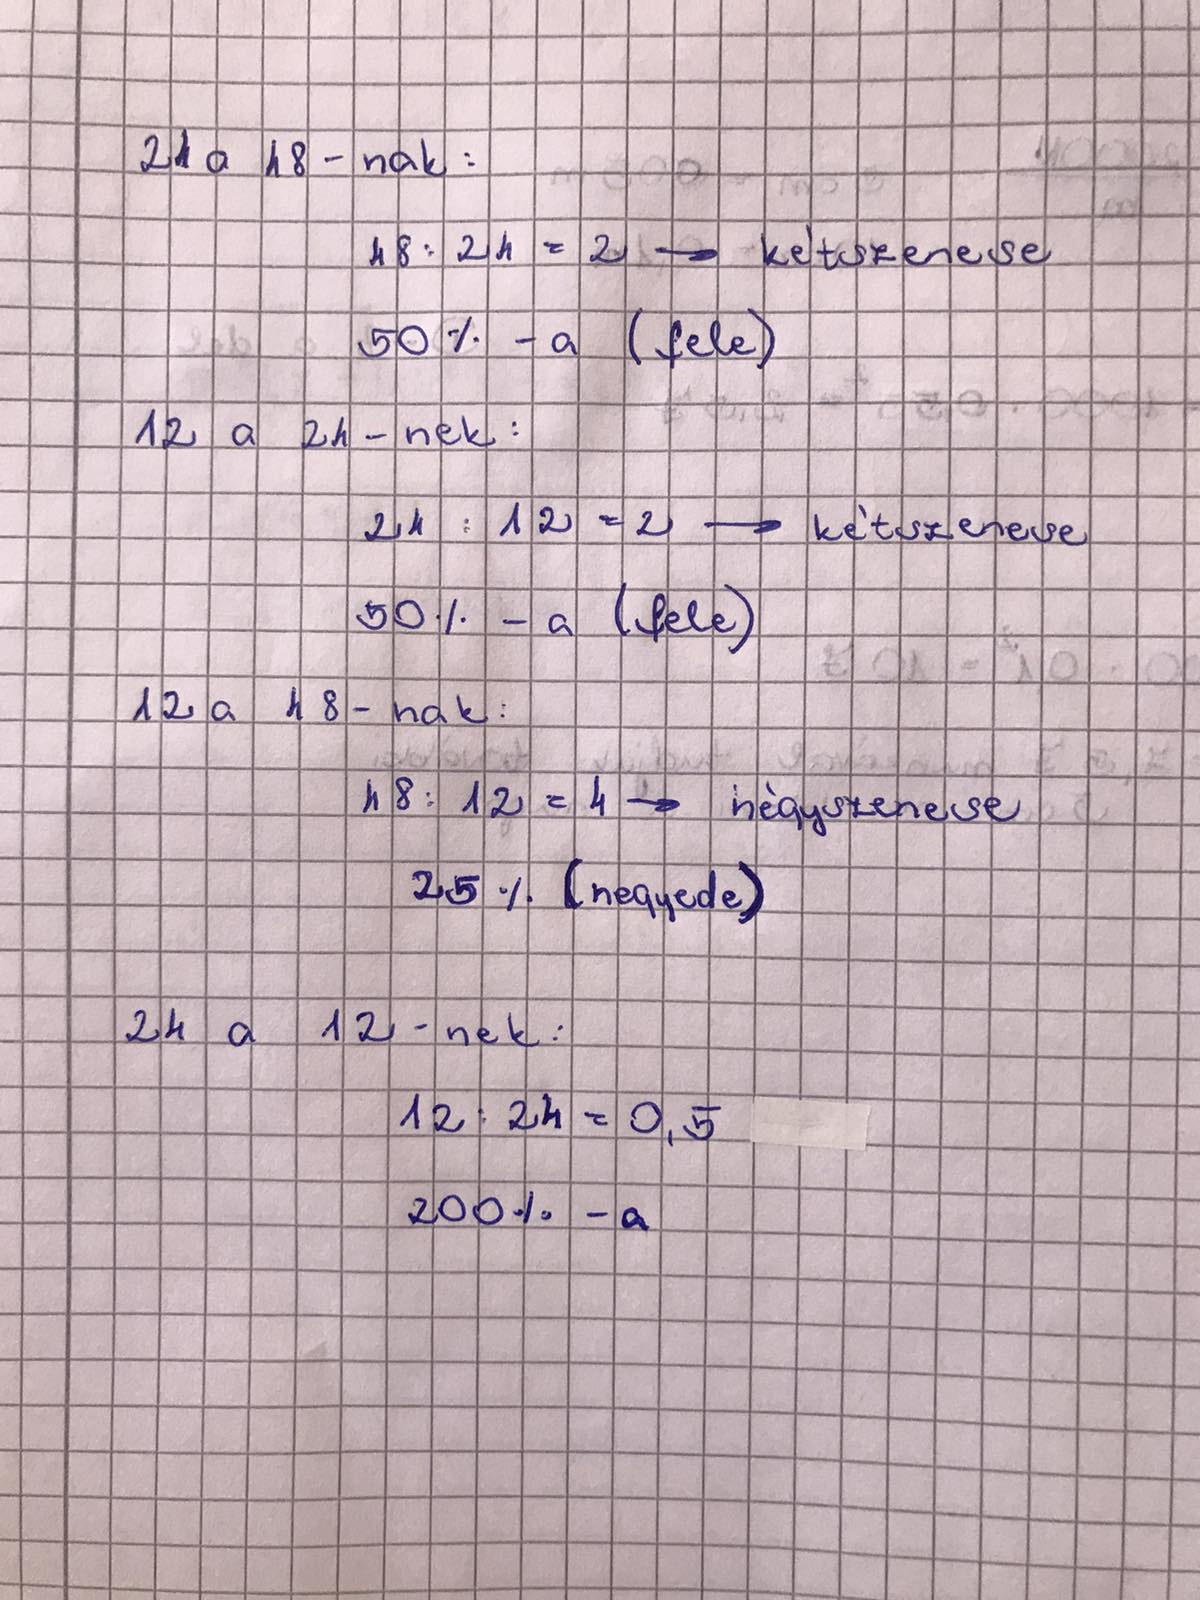 24 a 48 - nak :
48 : 24 = 2 → kétszerese
50 % - a (fele)
12 a 24 - nek :
24 : 12 = 2 → kétszerese
50 % - a (fele)
12 a 48 - nak :
48 : 12 = 4 → négyszerese
25 % (negyede)
24 a 12 - nek :
12 : 24 = 0,5
200 % - a